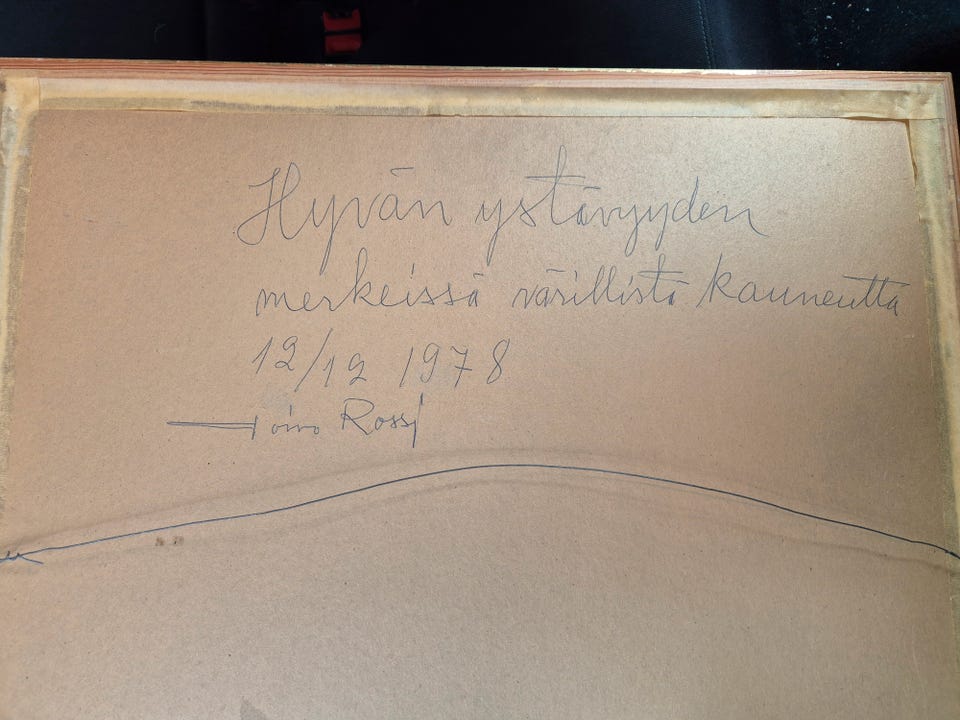 Hyvän ystävyyden
merkeissä värillistä kauneutta
12/12 1978
Toivo Rossi